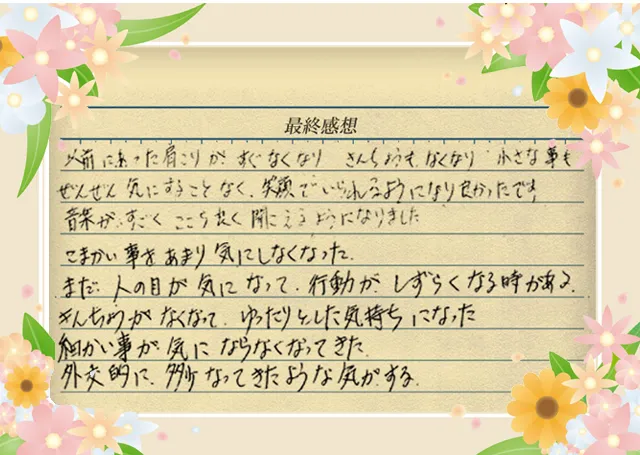 最終感想
以前にあった肩こりがすぐなくなり きんちょうも、なくなり 小さな事も
ぜんぜん気にすることなく、笑顔でいられるようになり良かったです
音楽がすごくここち良く聞こえるようになりました
こまかい事をあまり気にしなくなった。
まだ人の目が気になって、行動がしずらくなる時がある。
きんちょうがなくなって、ゆったりとした気持ちになった
細かい事が気にならなくなってきた。
外交的に、多少なってきたような気がする。